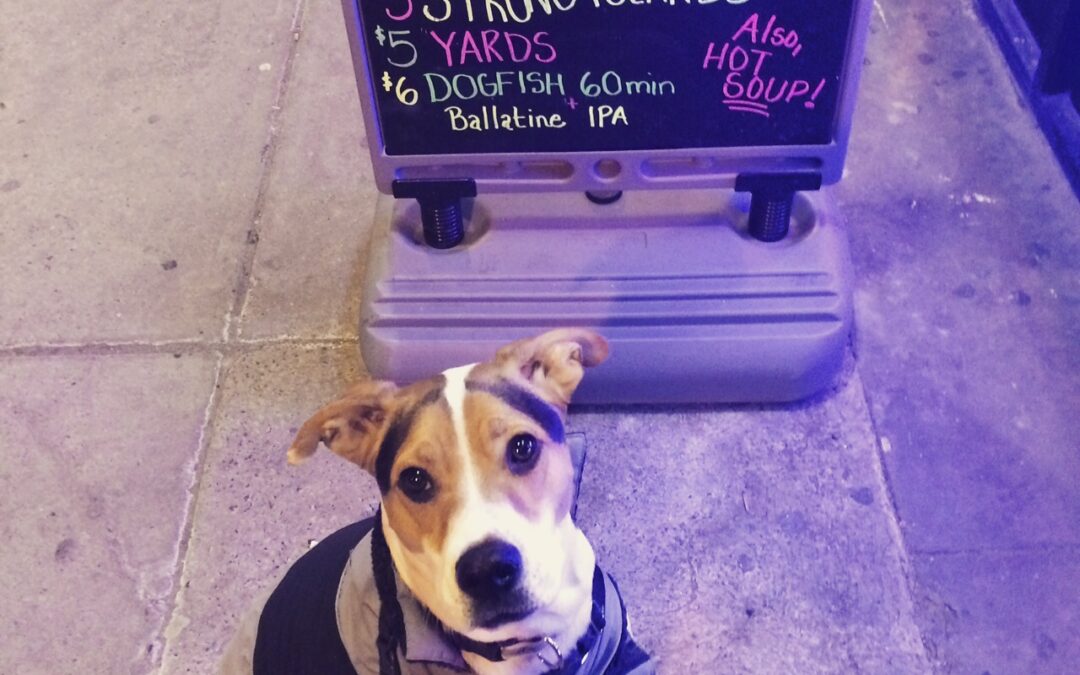 5
$5 YARDS
$6 DOGFISH 60min
+
Ballatine IPA
Also,
HOT
SOUP!